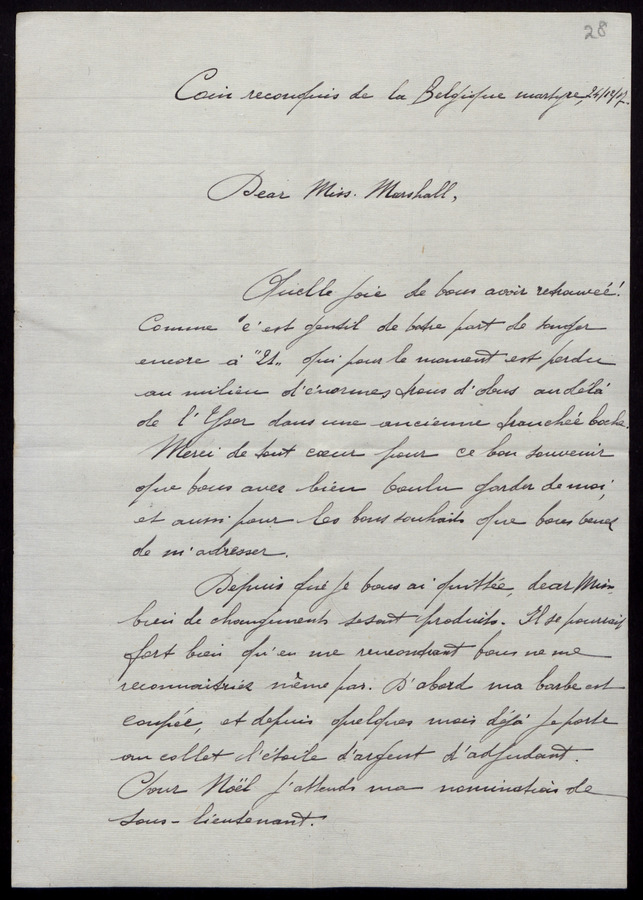 28
Coin reconquis de la Belgique martyre, 24/12/17.
Dear Miss. Marshall,
Quelle joie de vous avoir retrouvée!
Comme c'est gentil de votre part de songer
encore à "21" qui pour le moment est perdu
au milieu d'énormes trous d'obus au delà
de l'Yser dans une ancienne tranchée boche.
Merci de tout cœur pour ce bon souvenir
que vous avez bien voulu garder de moi,
et aussi pour les bons souhaits que vous venez
de m'adresser.
Depuis que je vous ai quittée, dear Miss
bien de changements se sont produits. Il se pourrait
fort bien qu'en me rencontrant vous ne me
reconnaitriez même pas. D'abord ma barbe est
coupée, et depuis quelques mois déjà je porte
au collet l'étoile d'argent d'adjudant.
Pour Noël j'attends ma nomination de
sous-lieutenant.